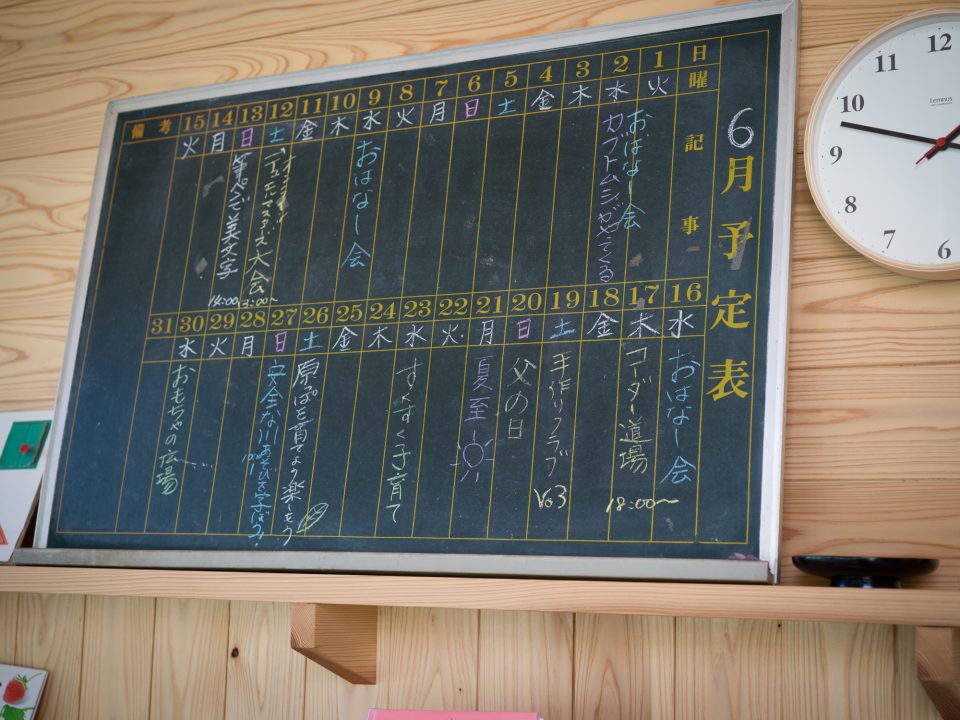 6月予定表
日曜 記事
1 火
2 水 おはなし会
カブトムシがやってくる
3 木
4 金
5 土
6 日
7 月
8 火
9 水 おはなし会
10 木
11 金
12 土
大会
13:00〜
13 日 筆ペンで美文字
14:00
14 月
15 火
備考
16 水 おはなし会
17 木 コーダー道場
18:00〜
18 金
19 土 手作りクラブ
Vo3
20 日 父の日
21 月 夏至
22 火
23 水 すくすく子育て
24 木
25 金
26 土 原っぱを育てよう楽しもう
27 日 安全な川あそびを学ぼう
28 月
29 火
30 水 おもちゃの広場
31
Lemnos
12
11
10
9
8
7
6